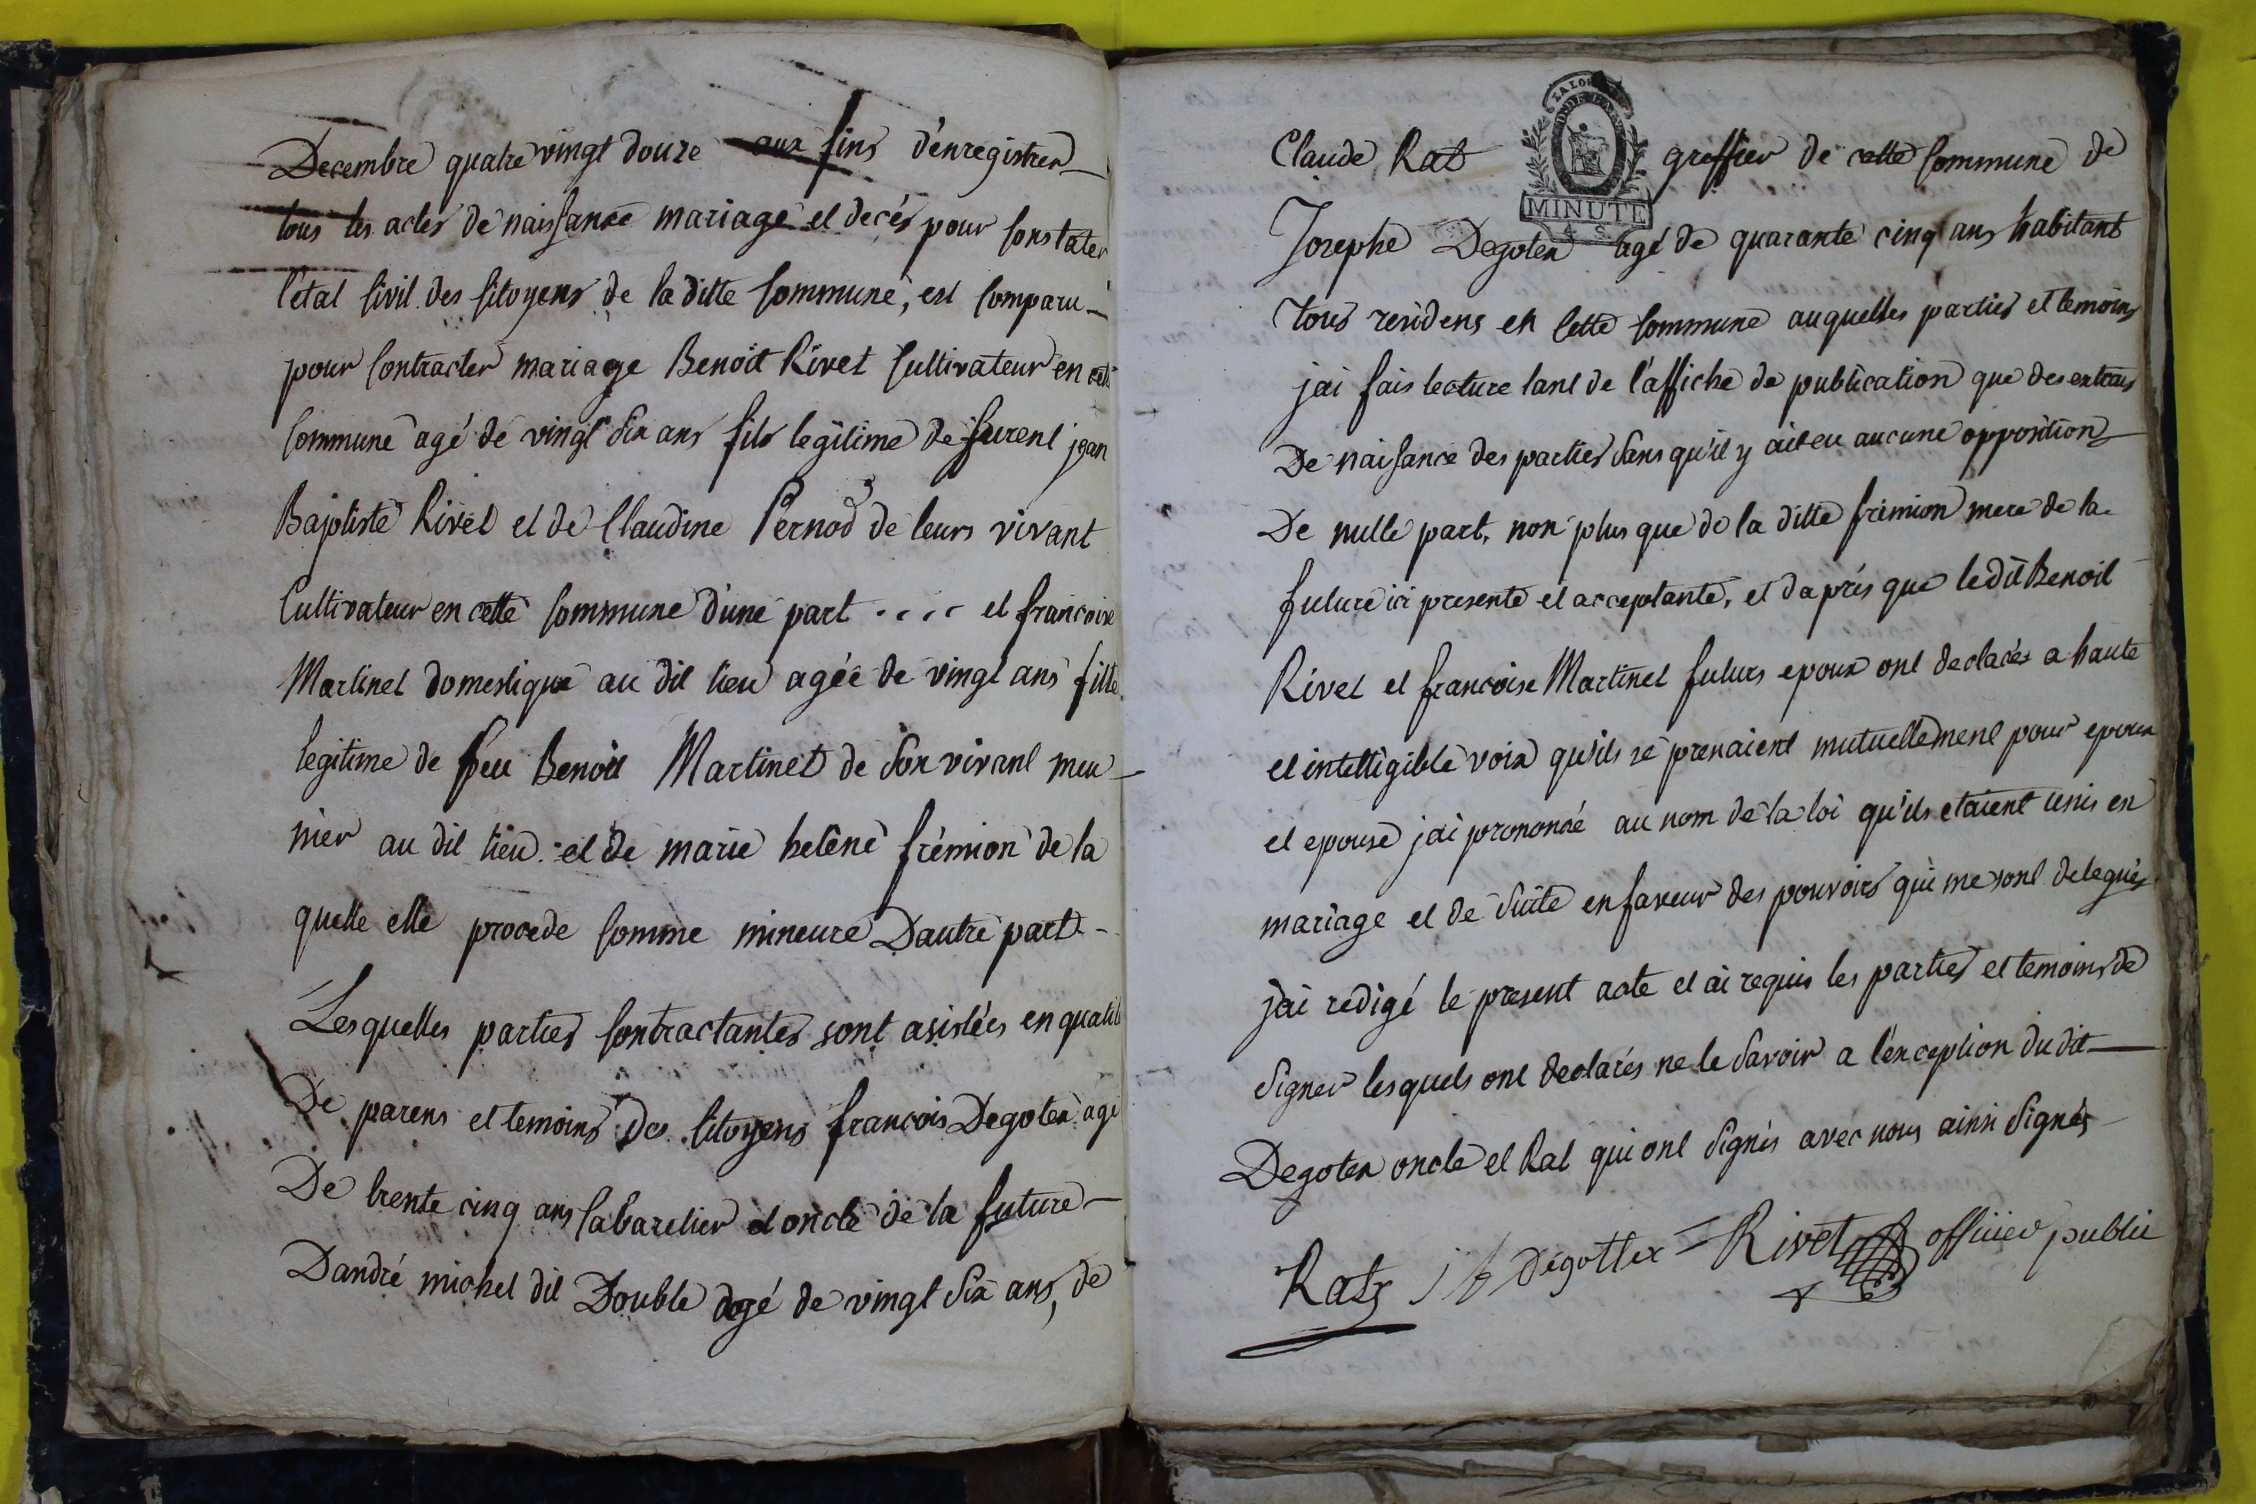 Decembre quatre vingt douze aux fins d'enregistrer
tous les actes de naissance mariage et decés pour Constater
l'état Civil des Citoyens de la ditte Commune, est Comparu
pour Contracter mariage Benoit Rivet Cultivateur en cette
Commune agé de vingt six ans fils legitime de furent jean
Baptiste Rivet et de Claudine Pernod de leurs vivant
Cultivateur en cette Commune d'une part .... et francoise
Martinet domestique au dit lieu agée de vingt ans fille
legitime de feu Benoit Martinet de son vivant meu-
nier au dit lieu. et de marie helêne frémion de la
quelle elle procede Comme mineure Dautre part -
Lesquelles parties Contractantes sont asistées en qualité
De parens et temoins des Citoyens francois Degotex agé
De trente cinq ans Cabaretier et oncle de la future
Dandré michel dit Double agé de vingt six ans, de
Claude Rat greffier de cette Commune de
LA LOI
MINUTE
4 S
Josephe Degotex agé de quarante cinq ans habitant
Tous residens en Cette Commune auquelles parties et temoins
jai fais lecture tant de l'affiche de publication que des extrais
De naissance des parties sans qu'il y ait eu aucune opposition
De nulle part, non plus que de la ditte frémion mere de la
future ici presente et acceptante, et daprés que ledit Benoit
Rivet et francoise Martinet futurs epoux ont declarés a haute
et intelligible voix qu'ils se prenaient mutuellement pour epoux
et epouse jai prononcé au nom de la loi qu'ils etaient unis en
mariage et de suite en faveur des pouvoirs qui me sont delegués
jai redigé le present acte et ai requis les parties et temoins de
signer lesquels ont declarés ne le savoir a l'exception du dit
Degotex oncle et Rat qui ont signés avec nous ainsi signés
Rat j f Degottex = Rivet officier public